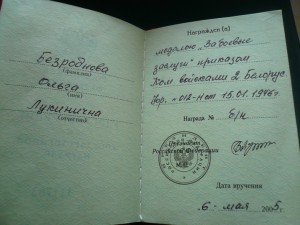 Безроднова
(фамилия)
Ольга
(имя)
Лукинична
(отчество)
Награжден (а)
медалью „За боевые
заслуги" приказом
Ком войсками 2 Белорус
фр. №012-н от 15.01.1946г.
Награда № б/н
Президент
Российской Федерации
М.П.
Дата вручения
„6" мая 2005 г.